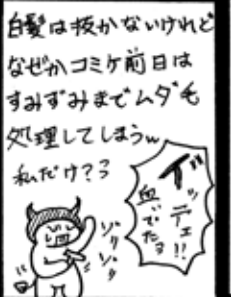 白髪は抜かないけれど
なぜかコミケ前日は
すみずみまでムダ毛
処理してしまうw
私だけ??
イッデェ!!
血でたョ
ゾリ
ゾリ